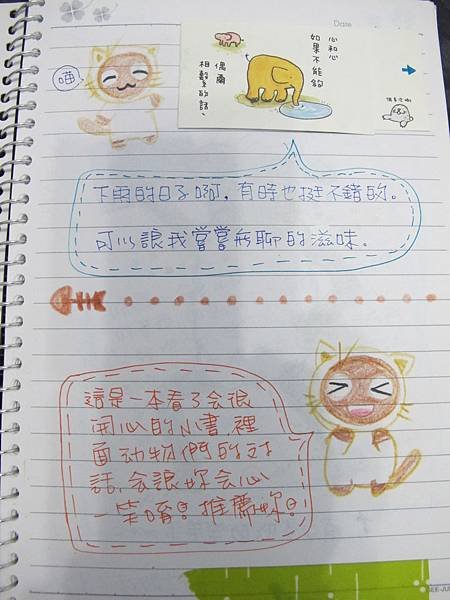 Date
喵
心和心
如果不能夠
偶爾
相繫的話、
下雨的日子啊，有時也挺不錯的。
可以讓我嘗嘗無聊的滋味。
這是一本看了会很
開心的小書，裡
面动物們的对
話，会讓妳会心
一笑唷！推薦妳！